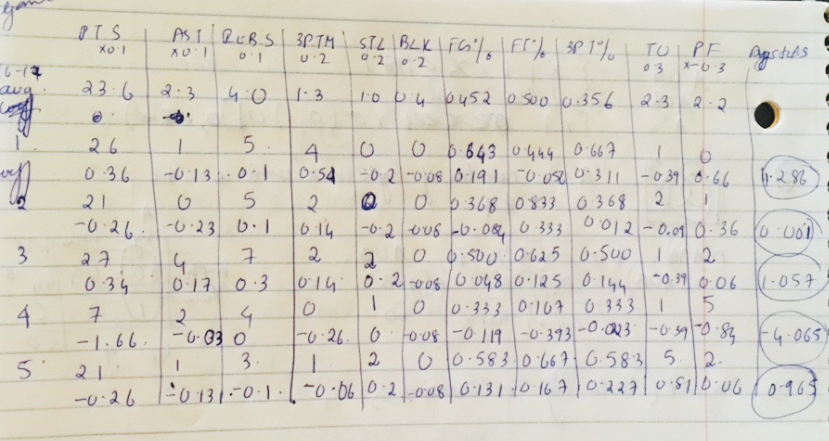 Game PTS AST REBS 3PTM STL BLK FG% FT% 3PT% TO PF
x0.1 x0.1 0.1 0.2 0.2 0.2 0.3 x-0.3
16-17
avg. 23.6 2.3 4.0 1.3 1.0 0.4 0.452 0.500 0.356 2.3 2.2
1. 26 1 5. 4 0 0 0.643 0.444 0.667 1 0
0.36 -0.13 0.1 0.54 -0.2 -0.08 0.191 -0.056 0.311 -0.39 0.66 1.286
2 21 0 5 2 0 0 0.368 0.833 0.368 2 1
-0.26. -0.23 0.1 0.14 -0.2 -0.08 -0.084 0.333 0.012 -0.09 0.36 0.001
3 27 4 7 2 2 0 0.500 0.625 0.500 1 2
0.34 0.17 0.3 0.14 0.2 -0.08 0.048 0.125 0.144 -0.39 0.06 1.057
4 7 2 4 0 1 0 0.333 0.107 0.333 1 5
-1.66. -0.03 0 -0.26. 0 -0.08 -0.119 -0.393 -0.023 -0.39 -0.84 -4.065
5 21 1 3. 1 2 0 0.583 0.667 0.583 5. 2.
-0.26 -0.131 -0.1. -0.06 0.2 -0.08 0.131 0.167 0.227 0.81 0.06 0.965